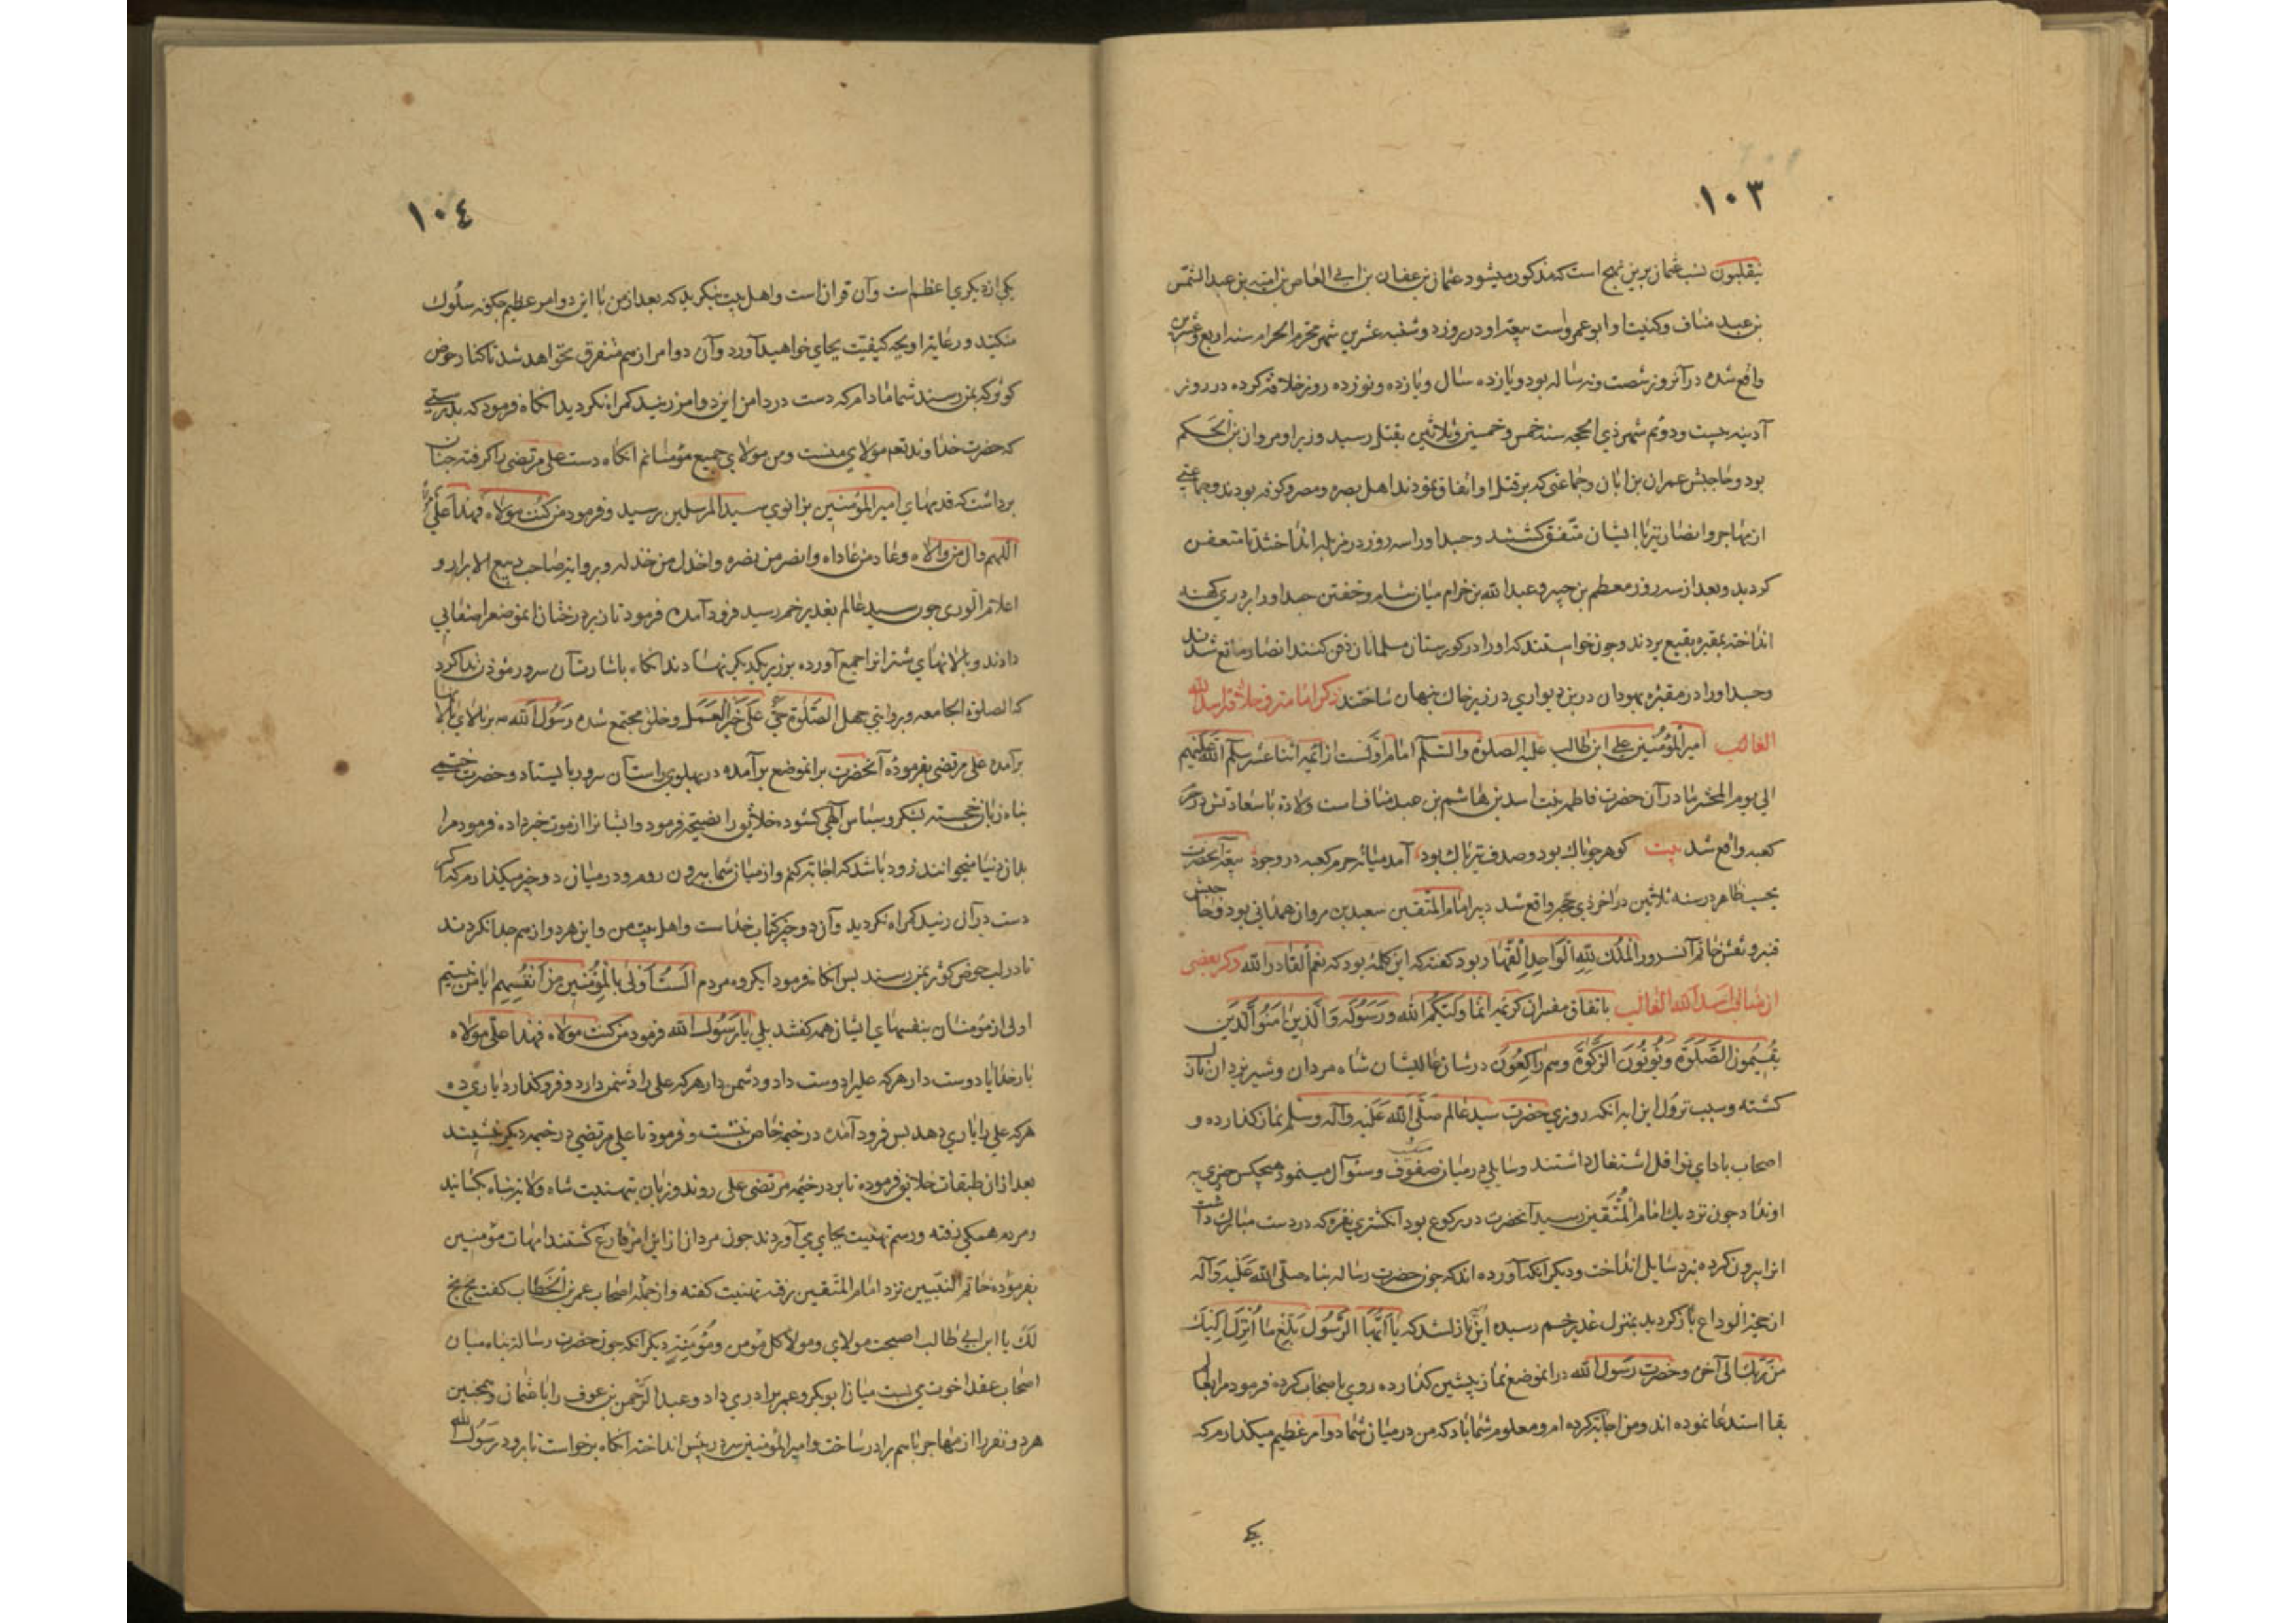 ١٠٣
ینقلبون نسب عثمان برین نهج است که مذکور میشود عثمان بن عفان بن ابی العاص بن امیه بن عبد الشمس
بن عبد مناف وکنیت او ابو عمرواست بیعة او در روز دوشنبه عشرین شهر محرم الحرام سنه اربع وعشرین
واقع شده در آنروز شصت ونه ساله بود ویازده سال ویازده ونوزده روز خلافة کرده در روز
آدینه بیست ودوم شهر ذی الحجه سنه خمس وخمسین وثلاثین بقتل رسید وزیر او مروان بن الحکم
بود وحاجبش عمران بن ابان وجماعتی که بر قتل او اتفاق نمودند اهل بصره ومصر وکوفه بودند وجماعتی
از مهاجر وانصار نیز با ایشان متفق کشتند وجسد او را سه روز در مزبله انداختند تا متعفن
کردید وبعد از سه روز معطم بن جبیر وعبد الله بن حرام میان شام وخفتن جسد او را بر دری کهنه
انداخته بمقبره بقیع بردند وچون خواستند که او را در کورستان مسلمانان دفن کنند انصار مانع شدند
وجسد او را در مقبره یهودان در بن دیواری در زیر خاک پنهان ساختند ذکر امامت وخلافة اسد الله
الغالب امیر المؤمنین علی ابن طالب علیه الصلوة والسلم امام اولست از ائمه اثنا عشر سلم الله علیهم
الی یوم المحشر مادر آن حضرت فاطمه بنت اسد بن هاشم بن عبد مناف است ولادة با سعادتش در حرم
کعبه واقع شد بیت کوهر چو پاک بود وصدف نیز پاک بود آمد میانه حرم کعبه در وجود بیعة آنحضرت
بحسب ظاهر در سنه ثلاثین در آخر ذی حجه واقع شد دبیر امام المتقین سعید بن مروان همدانی بود وحاجبش
قنبر ونقش خاتم آنسرور الملک لله الواحد القهار بود کفته که این کلمه بود که نعم القادر الله وذکر بعضی
از فضایل اسد الله الغالب باتفاق مفسران کریمه انما ولیکم الله ورسوله والذین امنوا الذین
یقیمون الصلوة ویؤتون الزکوة وهم راکعون در شان عالیشان شاه مردان وشیر یزدان نازل
کشته وسبب نزول این آیه آنکه روزی حضرت سید عالم صلی الله علیه وآله وسلم نماز کذارده و
اصحاب بادای نوافل اشتغال داشتند وسایلی در میان صفوف وسئوال مینمود هیچکس چیزی به
او نداد چون نزدیک امام المتقین رسید آنحضرت در رکوع بود انکشتری نقره که در دست مبارک داشت
از آن بیرون کرده نزد سایل انداخت ودیکر آنکه آورده اند که چون حضرت رسالة پناه صلی الله علیه وآله
از حجة الوداع باز کردید بمنزل غدیر خم رسیده این نازل شد که یا ایها الرسول بلغ ما انزل الیک
من ربک الی آخره وحضرت رسول الله در انموضع نماز پیشین کذارده روی باصحاب کرده فرمود مرا بعالم
بقا استدعا نموده اند ومن اجابة کرده ام ومعلوم شما باد که من در میان شما دو امر عظیم میکذارم که
یکی
١٠٤
یکی از دیکری اعظم است وآن قران است واهل بیت بنکرید که بعد از من با این دو امر عظیم چکونه سلوک
میکنید ورعایة او بچه کیفیت بجای خواهید آورد وآن دو امر از هم متفرق نخواهد شد تا کنار حوض
کوثر که بمن رسند شما مادام که دست در دامن این دو امر زنید کمراه نکردید انکاه فرمود که بدرستی
که حضرت خداوند تعم مولای منست ومن مولای جمیع مؤمنانم انکاه دست علی مرتضی را کرفته چنان
برداشت که قدمهای امیر المؤمنین بزانوی سید المرسلین رسید وفرمود من کنت مولاه فهذا علی مولاه
اللهم وال من والاه وعاد من عاداه وانصر من نصره واخذل من خذله وبروایة صاحب ربیع الابرار و
اعلام الوری چون سید عالم بغدیر خم رسید فرود آمده فرمود تا زیر درختان انموضع را صفایی
دادند وپالانهای شترانرا جمع آورده بر زبر یکدیکر نهادند انکاه باشارت آن سرور مؤذن ندا کرد
که الصلوة الجامعه وبروایتی حی الصلوة حی علی خیر العمل وخلق مجتمع شده رسول الله ص بر بالای پالانها
برآمده علی مرتضی بفرموده آنحضرت بر انموضع برآمده در پهلوی راست آن سرور بایستاد وحضرت ختمی
پناه زبان خجسته بشکر وسپاس الهی کشوده خلایق را نصیحة فرمود وایشانرا از موت خبر داده فرمود مرا
بدان دنیا میخوانند زود باشد که اجابة کنم واز میان شما بیرون روم ودر میان دو چیز میکذارم که اکر
دست در آن زنید کمراه نکردید وآن دو چیز کتاب خداست واهل بیت من واین هر دو از هم جدا نکردند
تا در لب حوض کوثر بمن رسند پس انکاه فرمود ای کروه مردم الست اولی بالمؤمنین من انفسهم ایا من نیستم
اولی از مؤمنان بنفسهای ایشان همه کفتند بلی یا رسول الله فرمود من کنت مولاه فهذا علی مولاه
بار خدایا دوست دار هرکه علیرا دوست دارد ودشمن دار هرکه علی را دشمن دارد وفرو کذار ویاری ده
هرکه علی را یاری دهد پس فرود آمده در خیمه خاص نشست وفرمود تا علی مرتضی در خیمه دیکر نشیند
بعد از ان طبقات خلایق فرموده تا بر در خیمه مرتضی علی روند وزبان بتهنیت شاه ولایة پناه بکشایند
ومردم همکی رفته ورسم تهنیت بجای می آوردند چون مردان از این امر فارغ کشتند امهات مؤمنین
بفرموده خاتم النبیین نزد امام المتقین رفته تهنیت کفته واز جمله اصحاب عمر بن الخطاب کفت بخ بخ
لک یا ابن ابی طالب اصبحت مولای ومولا کل مؤمن ومؤمنة دیکر آنکه چون حضرت رسالة پناه میان
اصحاب عقد اخوت می بست میان ابوبکر وعمر برادری داد وعبد الرحمن بن عوف را با عثمان وهمچنین
هر دو نفر را از مهاجر با هم برادر ساخت وامیر المؤمنین سر در پیش انداخته انکاه برخواست تا برود رسول الله